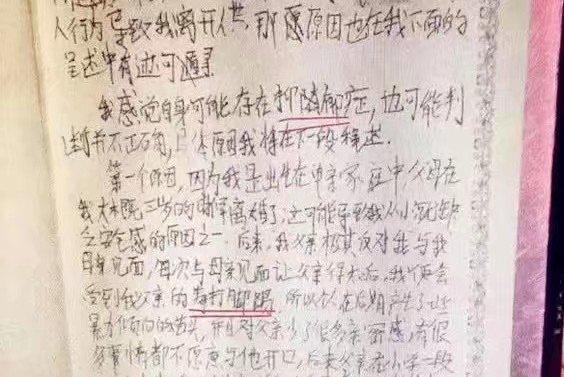 人行为导致我离开人世，那愿原因也在我下面的
呈述中有迹可遁寻
我感觉自身可能存在抑郁症，也可能判
断并不正确，具体原因我将在下一段释述．
第一个原因，因为我是出生在单亲家庭中父母在
我大概三岁的时候离婚了，这可能导致我从小就缺
乏安全感的原因之一．后来，我父亲极其反对我与我
母亲见面，每次与母亲见面让父亲得知后，我便会
受到我父亲的毒打脚踢，所以个人在后期产生了些
暴力倾向的苗头，并且对父亲少了很多亲密感，有很
多事情都不愿意与他开口，后来父亲在小学一段